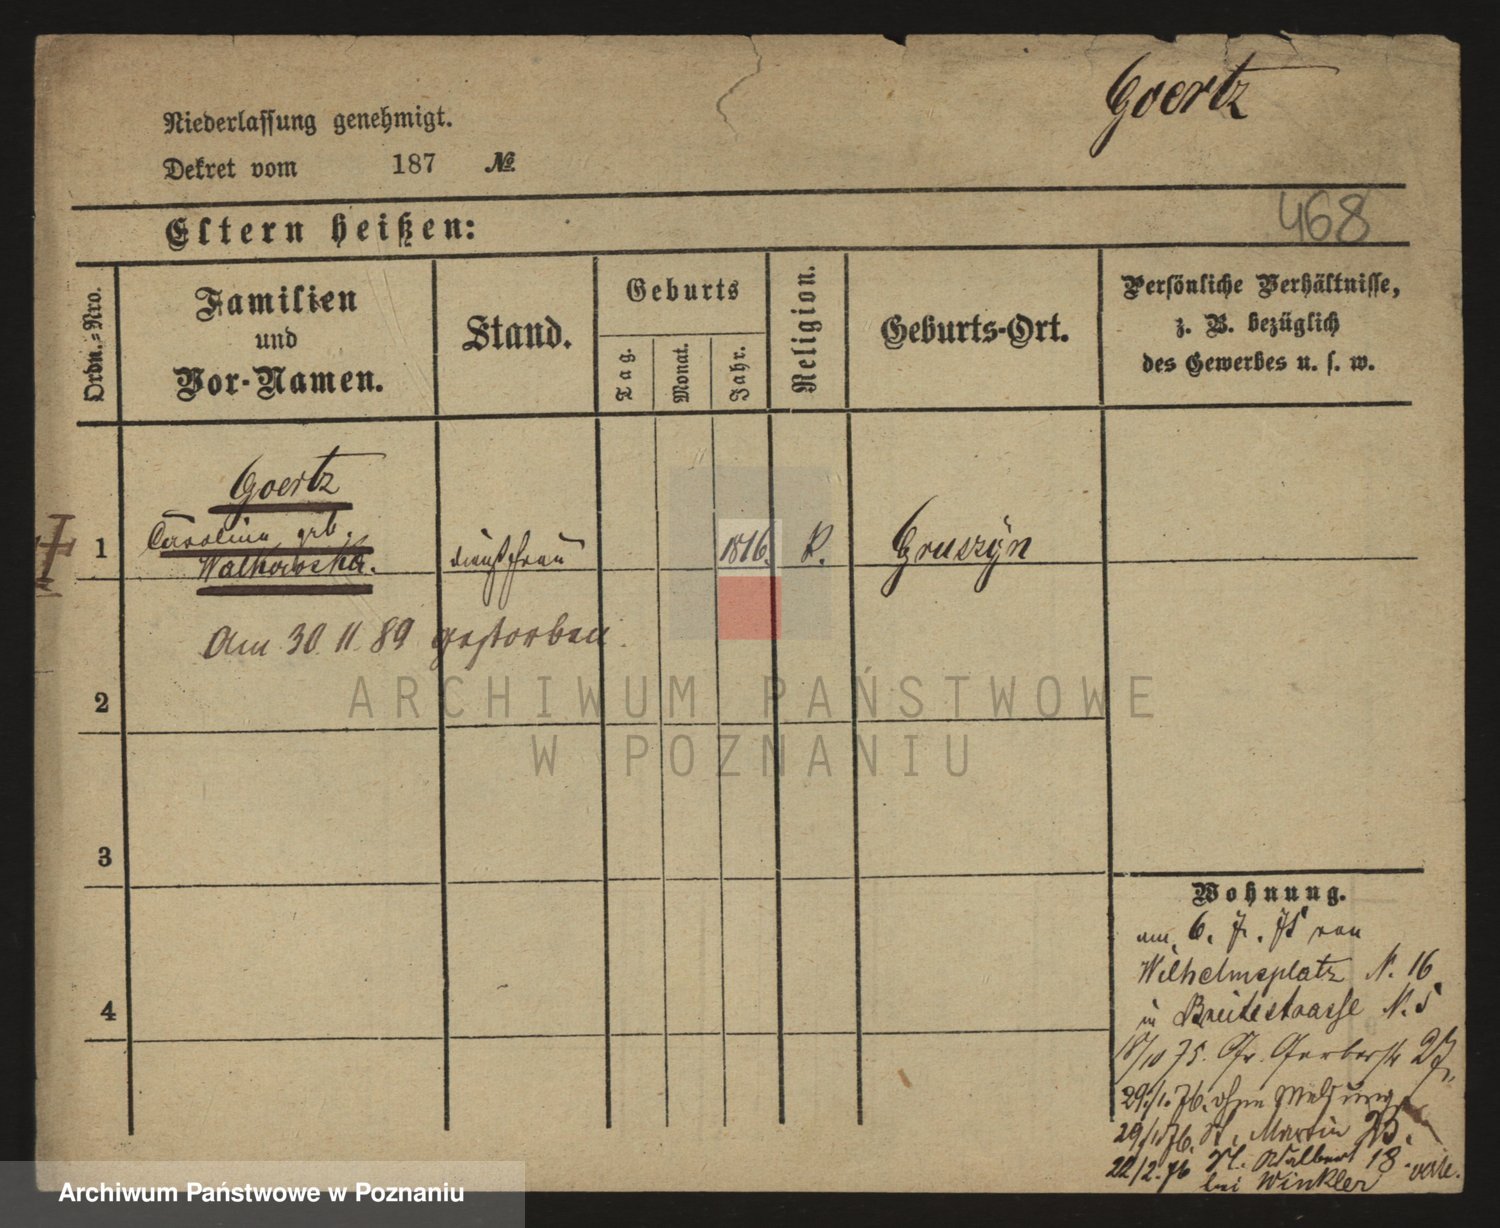 Goertz
Niederlassung genehmigt.
Dekret vom 187 №
468
Eltern heißen:
Ordn.-Nro.
Familien
und
Vor-Namen.
Stand.
Geburts
Tag.
Monat.
Jahr.
Religion.
Geburts-Ort.
Persönliche Verhältnisse,
z. B. bezüglich
des Gewerbes u. s. w.
Goertz
Carolina geb.
1 Walkowska. Dienstfrau 1816. K. Gruszyn
Am 30. 11. 89 gestorben.
2
ARCHIWUM PAŃSTWOWE
W POZNANIU
3
Wohnung.
am 6. 7. 75 von
Wilhelmsplatz N. 16
in Breitestrasse N. 5
4
18/10 75. Gr. Gerberstr 27.
29/1. 76. ohne Meldung
29/1 76. St. Martin 25.
22/2. 76 St. Adalbert 18
bei Winkler
Archiwum Państwowe w Poznaniu